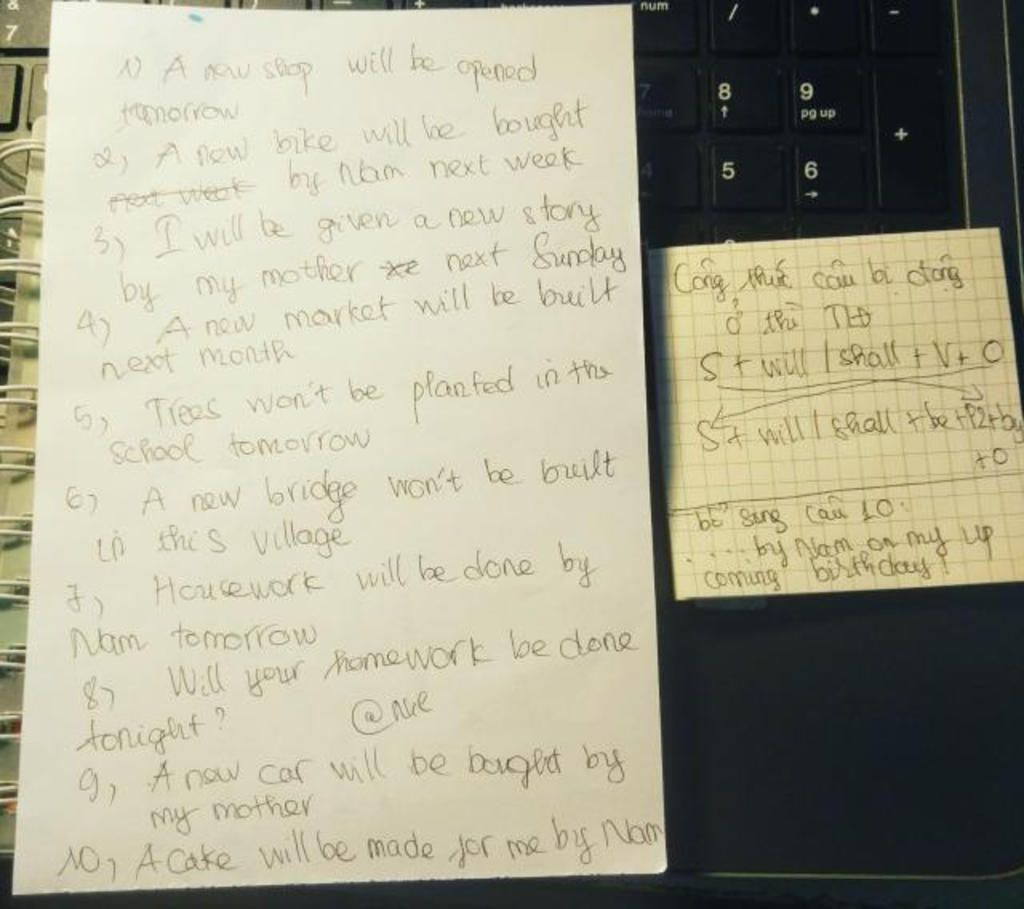 1) A new shop will be opened
tomorrow
2, A new bike will be bought
next week by Nam next week
3, I will be given a new story
by my mother next Sunday
4, A new market will be built
next month
5, Trees won't be planted in the
school tomorrow
6, A new bridge won't be built
in this village
7, Housework will be done by
Nam tomorrow
8, Will your homework be done
tonight?
9, A new car will be bought by
my mother
10, A cake will be made for me by Nam
Công thức câu bị động
ở thì TLĐ
S + will / shall + V + O
S + will / shall + be + P2 + by
+ O
bổ sung câu 10:
.....by Nam on my up
coming birthday!
num
/
*
-
7
8
↑
9
pg up
+
5
6
→
&
7